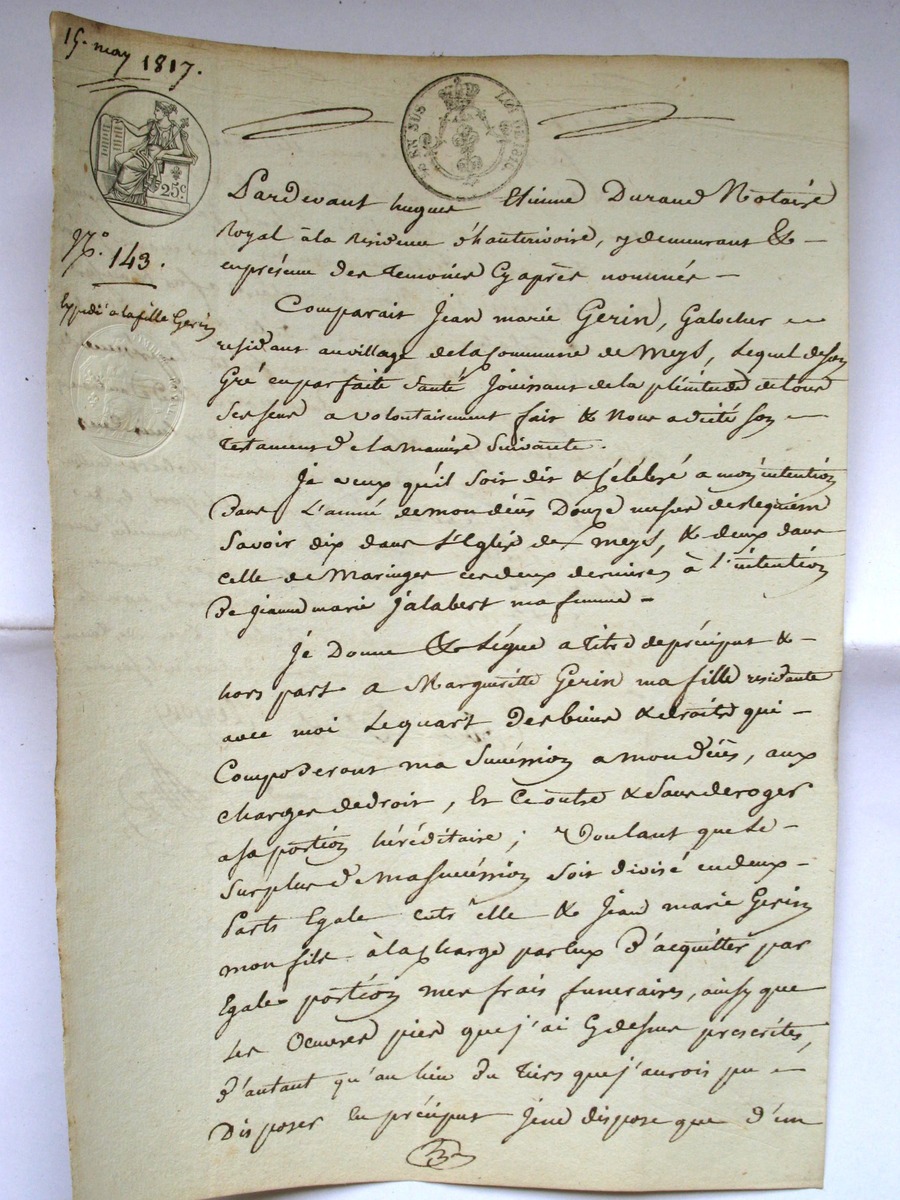 15. may 1817.
EN SUS
LOI DE 1816
25c
No.
143.
Expedié a la fille Gerin
Pardevant hugues Etienne Durand Notaire
Royal à la Residence d'hauterivoire, y demeurant &
en présence des temoins Cy après nommés
Comparait Jean marie Gerin, Galocher
residant au village de la Commune de Meys, Lequel de son
Gré en parfaite Santé Jouissant de la plénitude de tous
Ses sens a volontairement fait & Nous a dicté Son
Testament de la maniere Suivante.
Je veux qu'il Soit dit & Célébré a mon intention
Dans L'année de mon décès Douze messes de Requiem
Savoir dix dans L'Eglise de Meys, & deux dans
celle de Maringes ces deux dernieres à l'intention
De Jeanne marie Jalabert ma femme
Je Donne & Légue a titre de préciput &
hors part a Margueritte Gerin ma fille residante
avec moi Le quart des biens & droits qui
Composeront ma Succession a mon décès, aux
charges de droit, Et Ce outre & Sans deroger
a sa portion héréditaire; Voulant que Le
Surplus de ma succession Soit divisé en deux
Parts Egale entr'elle & Jean marie Gerin
mon fils à la charge par Eux d'acquitter par
Egale portion mes frais funeraires, ainsy que
Les Oeuvres pies que j'ai Cy dessus prescrites,
D'autant qu'au lieu du tiers que j'aurois pu
Disposer En préciput J'en dispose que d'un